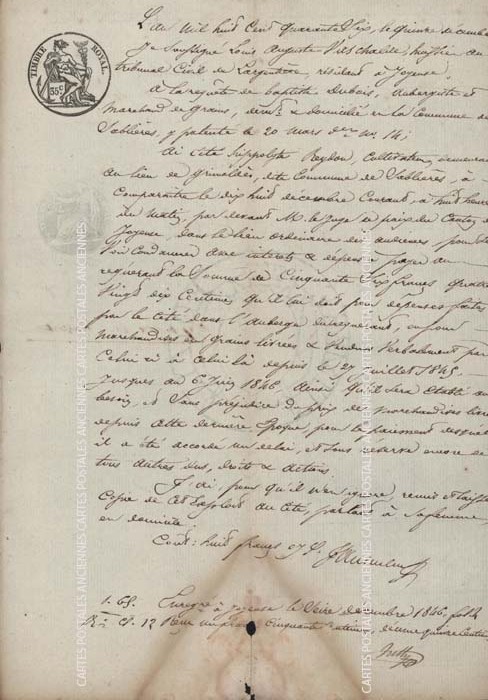 TIMBRE ROYAL
35c
L'an mil huit cent quarante six, le quinze décembre
Je soussigné Louis Auguste huissier au
tribunal Civil de Largentière, résidant à Joyeuse,
A la requête de baptiste Dubois, aubergiste et
marchand de grains, demt & domicilié en la Commune de
Sablières, y patenté le 20 mars der no. 14;
Ai cité hippolyte Reydon, cultivateur, demeurant
au lieu de dite Commune de Sablières, à
Comparaître le dix huit décembre Courant, à huit heures
du matin, par devant M. le juge de paix du Canton de
Joyeuse, dans le lieu ordinaire des audiences, pour
S'en Condamner avec intérêts & dépens payer au
requérant la Somme de Cinquante Six francs quatre
Vingt dix Centimes qu'il lui doit pour dépenses faites
par le Cité dans l'auberge du requérant, ou pour
marchandises en grains livrées & vendues Verbalement par
Celui ci à Celui là depuis le 27 juillet 1845,
jusques au 6 juin 1846, Ainsi qu'il sera établi au
besoin, et Sans préjudice du prix de marchandises
depuis cette dernière époque, pour le paiement desquelles
il a été accordé un délai, et sous réserve encore de
tous autres dus, droits & actions.
Et ai, pour qu'il n'en ignore, remis et laissé
Copie de cet Exploit au cité, parlant à sa femme,
en domicile.
Cout: huit francs
1. 65. Enregé à Joyeuse le Seize décembre 1846, fol.
Ro C. 12 Reçu un franc cinquante centimes, décime quinze centimes
CARTES POSTALES ANCIENNES CARTES POSTALES ANCIENNES CARTES POSTALES ANCIENNES
CARTES POSTALES ANCIENNES CARTES POSTALES ANCIENNES CARTES POSTALES ANCIENNES